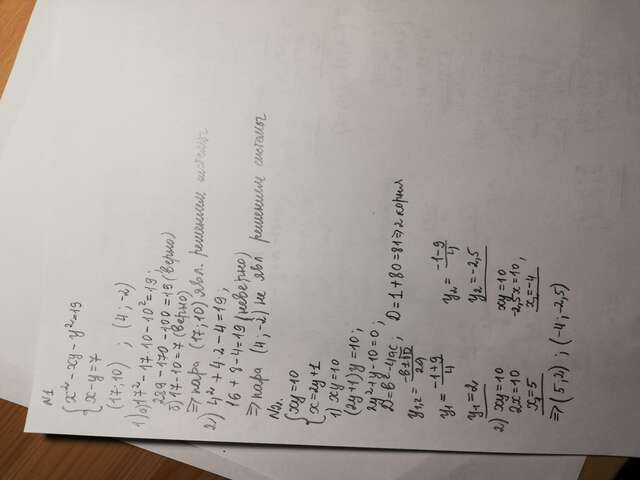 N1
{x²-xy-y²=19
x-y=7
(17;10) ; (4;-2)
1) а) 17²-17·10-10²=19;
289-170-100=19 (верно)
б) 17-10=7 (верно)
⇒ пара (17;10) явл. решением системы
2) 4²+4·2-4=19;
16+8-4=19 (неверно)
⇒ пара (4;-2) не явл решением системы
N2.
{xy=10
x=2y+1
1) xy=10
(2y+1)y=10;
2y²+y-10=0;
D=b²-4ac; D=1+80=81⇒2 корня
y1,2=-b±√D/2a
y1=-1+9/4 y2=-1-9/4
y1=2, y2=-2,5
2) xy=10 xy=10
2x=10 -2,5x=10,
x=5 x=-4
⇒(5;2) ; (-4;-2,5)